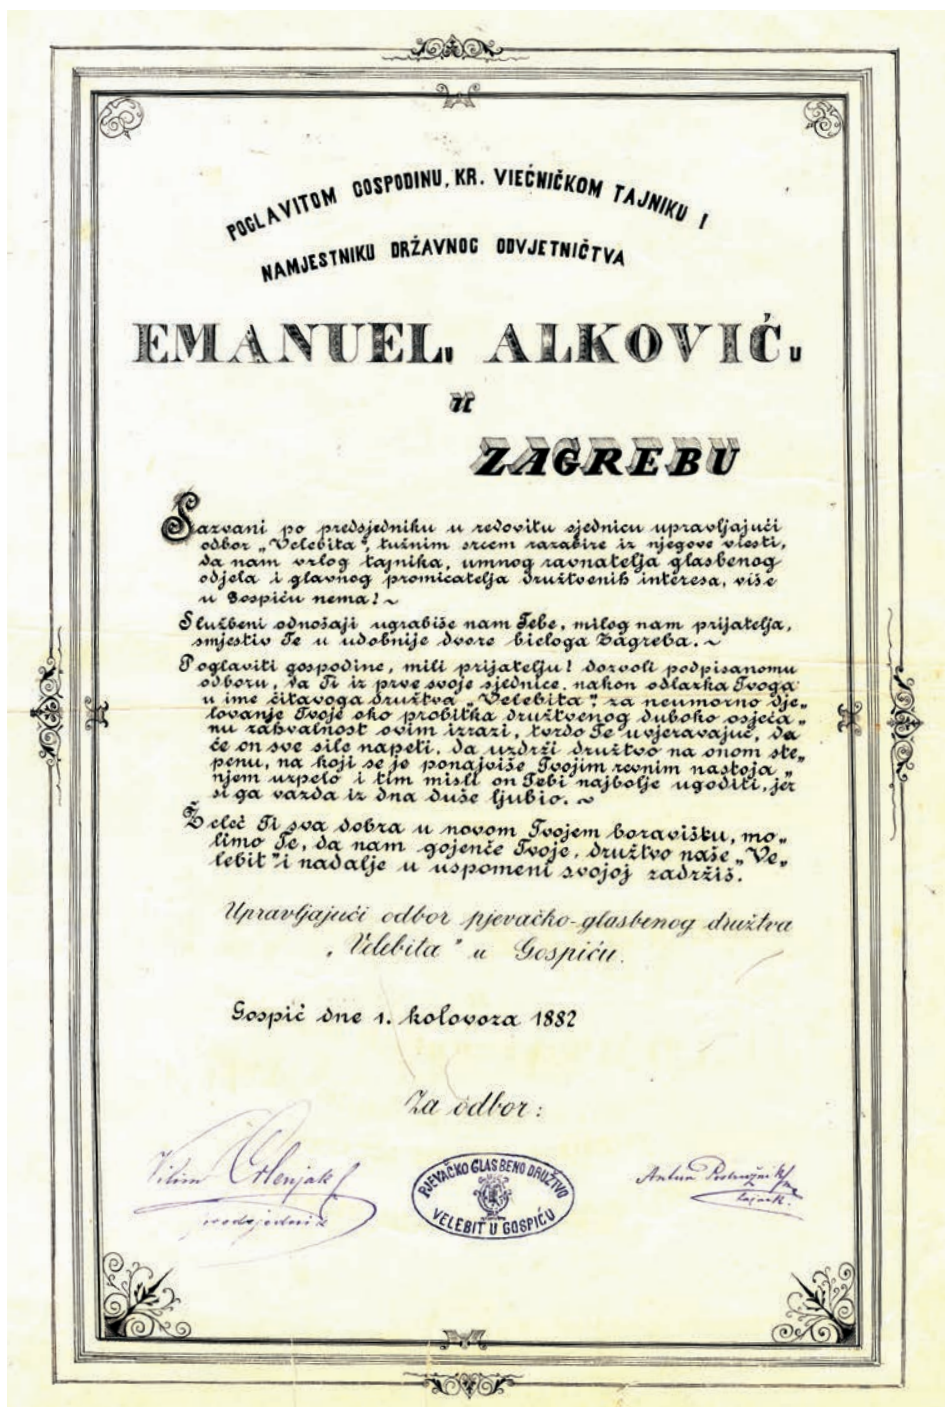 POGLAVITOM GOSPODINU, KR. VIEĆNIČKOM TAJNIKU I
NAMJESTNIKU DRŽAVNOG ODVJETNIČTVA
EMANUELU ALKOVIĆU
u
ZAGREBU
Sazvani po predsjedniku u redovitu sjednicu upravljajući
odbor „Velebita“, tužnim srcem razabire iz njegove viesti,
da nam vrlog tajnika, umnog ravnatelja glasbenog
odjela i glavnog promicatelja družtvenih interesa, više
u Gospiću nema! ~
Službeni odnošaji ugrabiše nam Tebe, milog nam prijatelja,
smjestiv Te u udobnije dvore bieloga Zagreba. ~
Poglaviti gospodine, mili prijatelju! dozvoli podpisanomu
odboru, da Ti iz prve svoje sjednice, nakon odlazka Tvoga
u ime čitavoga družtva „Velebita“, za neumorno dje„
lovanje Tvoje oko probitka družtvenog duboko osjeća„
nu zahvalnost ovim izrazi, tvrdo Te uvjeravajuć, da
će on sve sile napeti, da uzdrži družtvo na onom ste„
penu, na koji se je ponajviše Tvojim revnim nastoja„
njem uzpelo i tim misli on Tebi najbolje ugoditi, jer
si ga vazda iz dna duše ljubio. ~
Želeć Ti sva dobra u novom Tvojem boravištu, mo„
limo Te, da nam gojenče Tvoje, družtvo naše „Ve„
lebit“ i nadalje u uspomeni svojoj zadržiš.
Upravljajući odbor pjevačko-glasbenog družtva
„Velebita“ u Gospiću.
Gospić dne 1. kolovoza 1882
Za odbor:
Vilim
predsjednik
PJEVAČKO GLASBENO DRUŽTVO
VELEBIT U GOSPIĆU
Antun
tajnik.